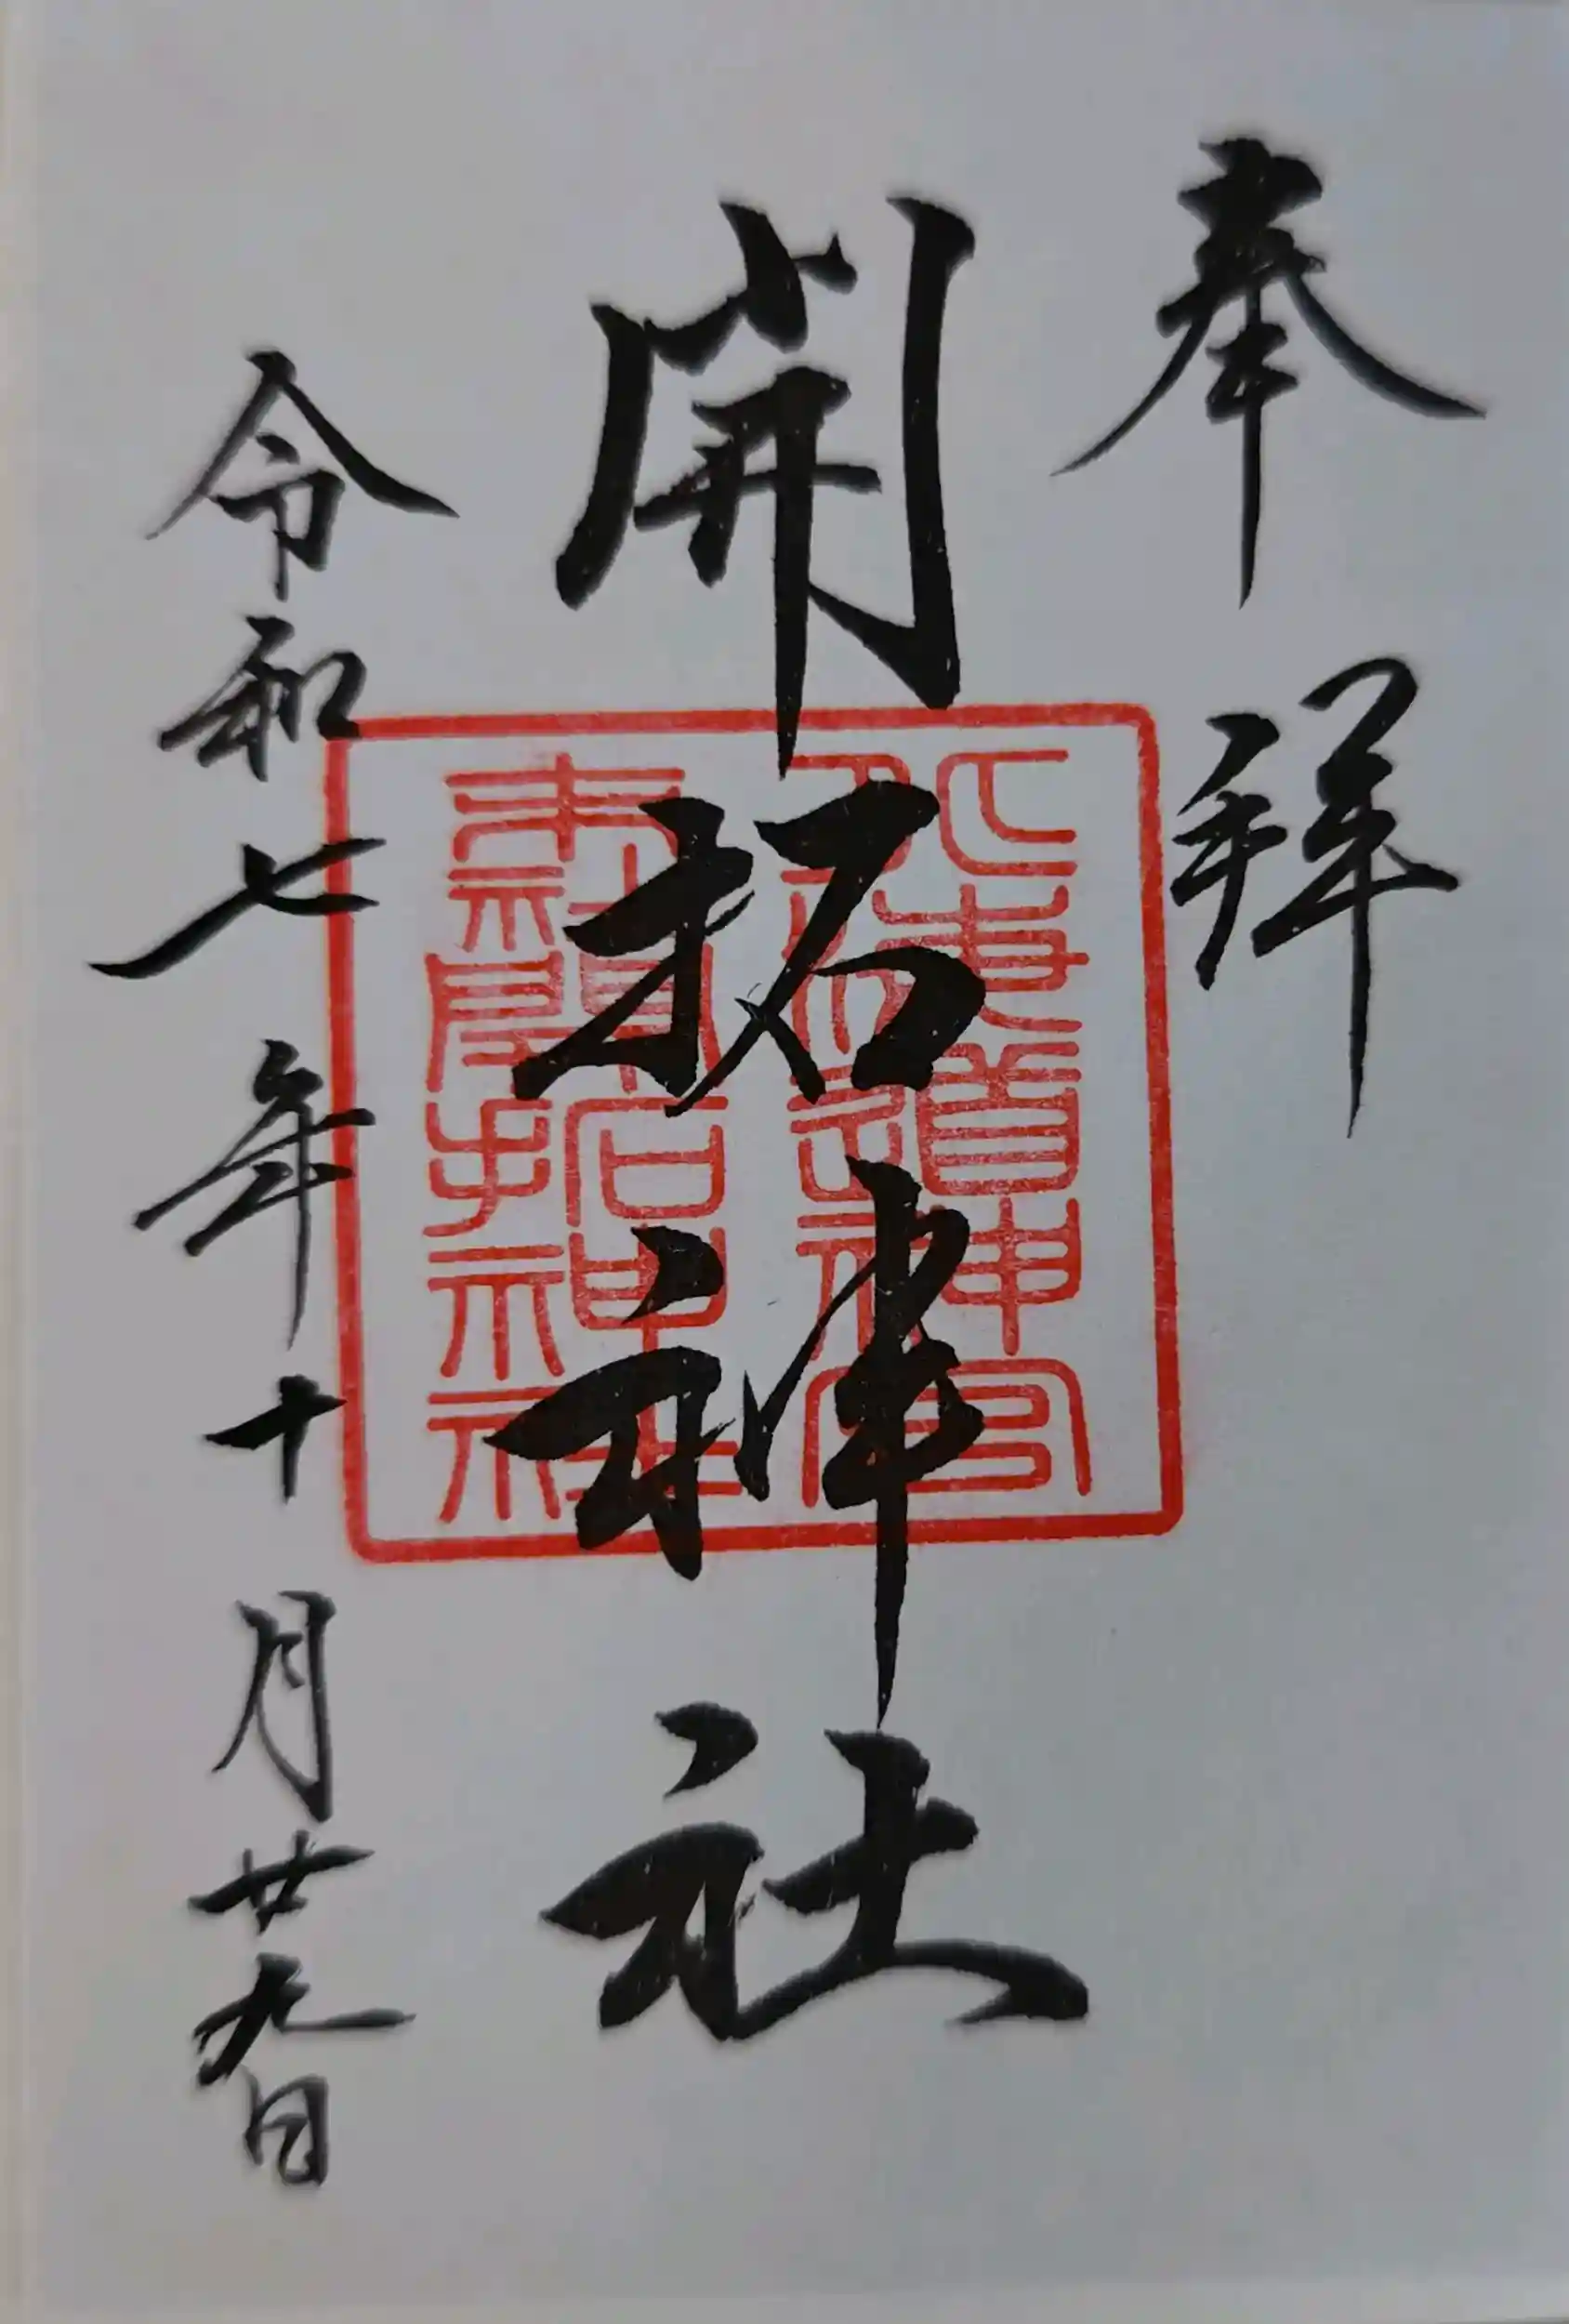 奉拝
開拓神社
令和七年十月廿九日
北海道神宮
末社開拓神社